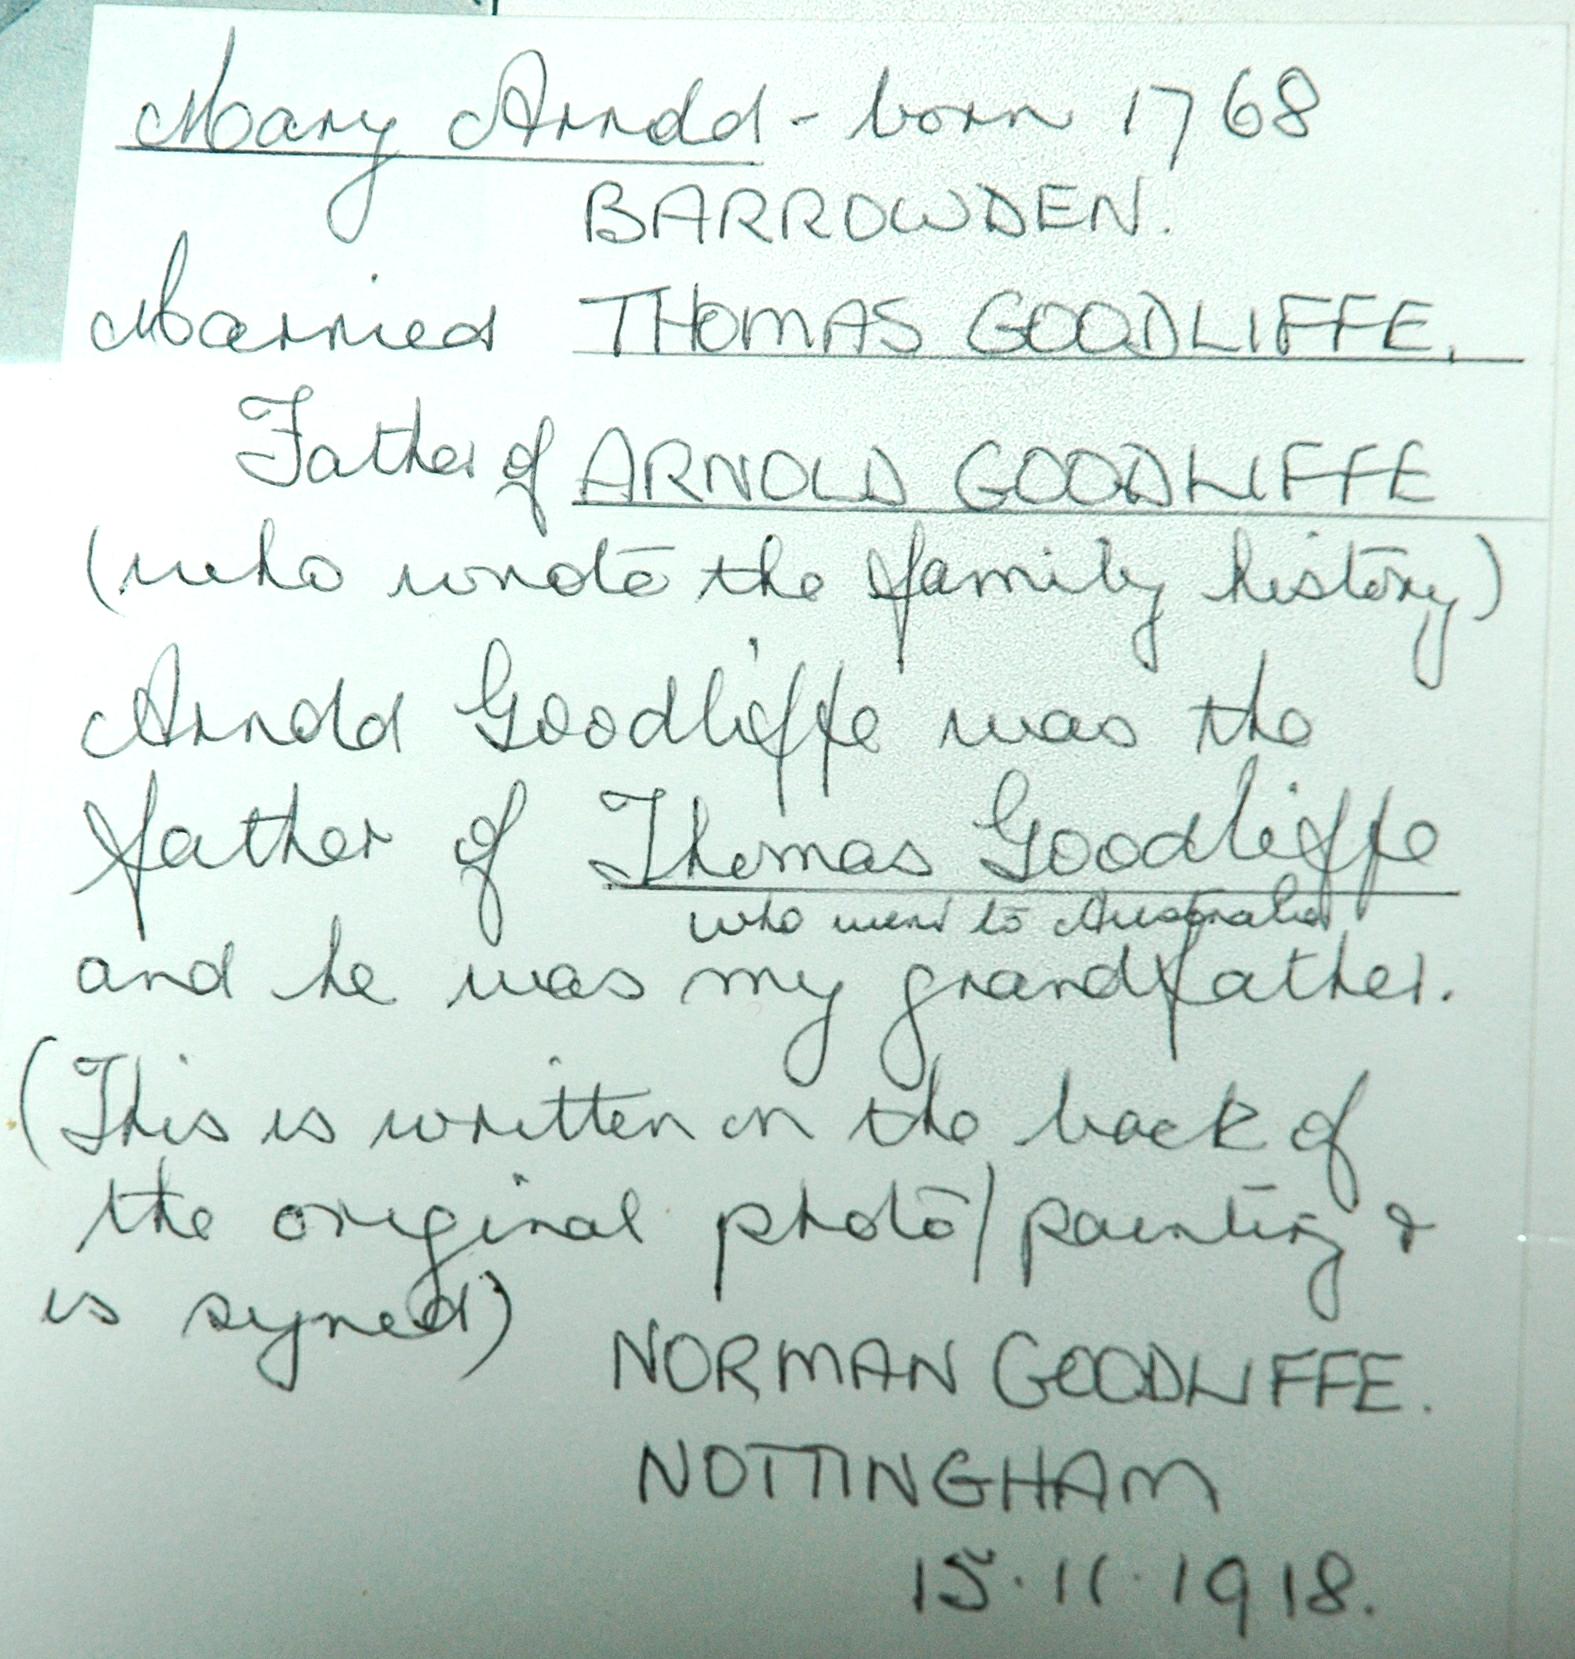 Mary Arnold - born 1768
BARROWDEN.
Married THOMAS GOODLIFFE.
Father of ARNOLD GOODLIFFE
(who wrote the family history)
Arnold Goodliffe was the
father of Thomas Goodliffe
who went to Australia
and he was my grandfather.
(This is written on the back of
the original photo/painting &
is signed)
NORMAN GOODLIFFE.
NOTTINGHAM
15.11.1918.